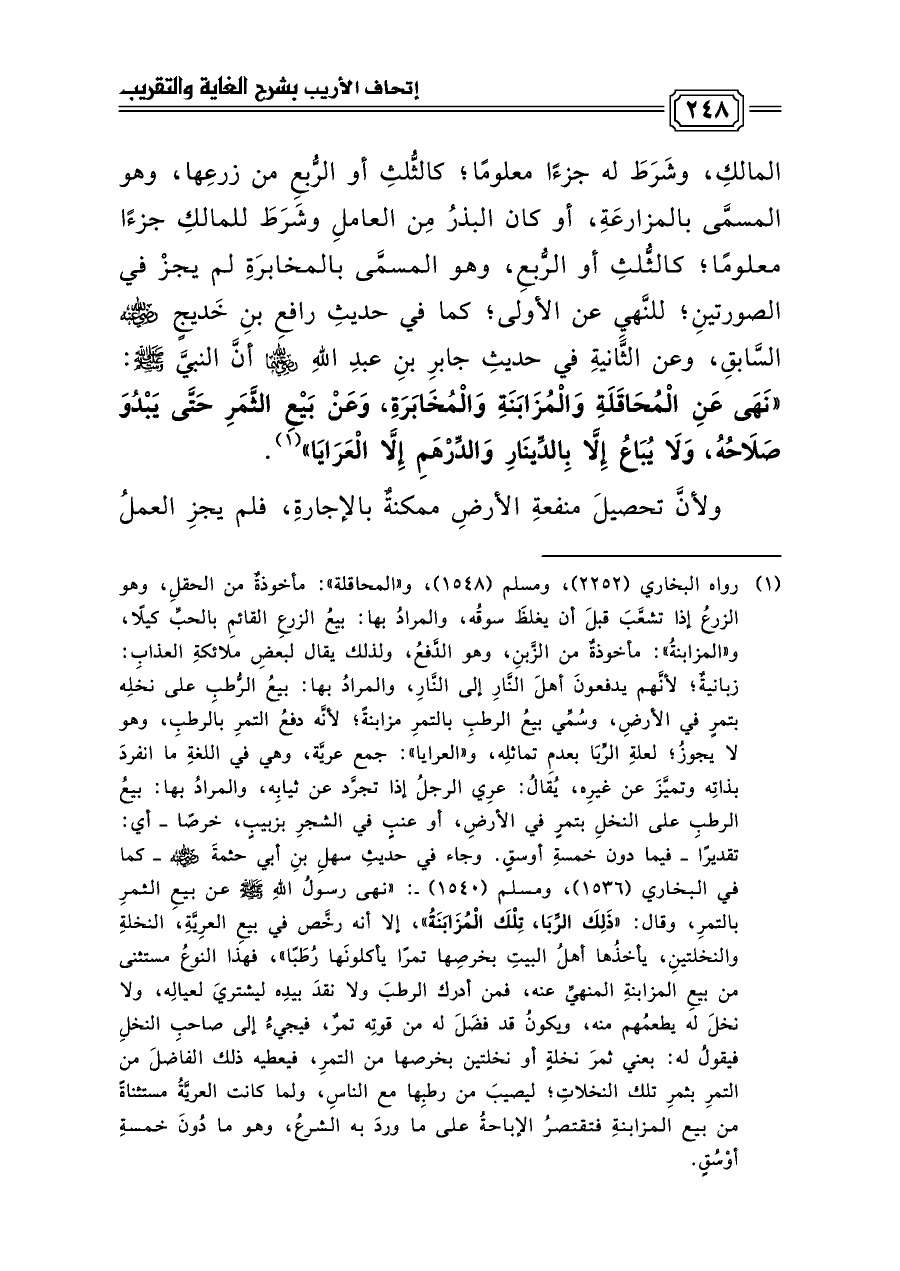 إتحاف الأريب بشرح الغاية والتقريب
٢٤٨
المالكِ، وشَرَطَ له جزءًا معلومًا؛ كالثُّلثِ أو الرُّبعِ من زرعِها، وهو
المسمَّى بالمزارعَةِ، أو كان البذرُ مِن العاملِ وشَرَطَ للمالكِ جزءًا
معلومًا؛ كالثُّلثِ أو الرُّبعِ، وهو المسمَّى بالمخابرَةِ لم يجزْ في
الصورتينِ؛ للنَّهيِ عن الأولى؛ كما في حديثِ رافعِ بنِ خَديجٍ رضي الله عنه
السَّابقِ، وعن الثَّانيةِ في حديثِ جابرِ بنِ عبدِ اللهِ رضي الله عنهما أنَّ النبيَّ ﷺ:
«نَهَى عَنِ الْمُحَاقَلَةِ وَالْمُزَابَنَةِ وَالْمُخَابَرَةِ، وَعَنْ بَيْعِ الثَّمَرِ حَتَّى يَبْدُوَ
صَلَاحُهُ، وَلَا يُبَاعُ إِلَّا بِالدِّينَارِ وَالدِّرْهَمِ إِلَّا الْعَرَايَا»(١).
ولأنَّ تحصيلَ منفعةِ الأرضِ ممكنةٌ بالإجارةِ، فلم يجزِ العملُ
(١) رواه البخاري (٢٢٥٢)، ومسلم (١٥٤٨)، و«المحاقلة»: مأخوذةٌ من الحقلِ، وهو
الزرعُ إذا تشعَّبَ قبلَ أن يغلظَ سوقُه، والمرادُ بها: بيعُ الزرعِ القائمِ بالحبِّ كيلًا،
و«المزابنةُ»: مأخوذةٌ من الزَّبنِ، وهو الدَّفعُ، ولذلك يقال لبعضِ ملائكةِ العذابِ:
زبانيةٌ؛ لأنَّهم يدفعونَ أهلَ النَّارِ إلى النَّارِ، والمرادُ بها: بيعُ الرُّطبِ على نخلِه
بتمرٍ في الأرضِ، وسُمِّي بيعُ الرطبِ بالتمرِ مزابنةً؛ لأنَّه دفعُ التمرِ بالرطبِ، وهو
لا يجوزُ؛ لعلةِ الرِّبَا بعدمِ تماثلِه، و«العرايا»: جمع عريَّة، وهي في اللغةِ ما انفردَ
بذاتِه وتميَّزَ عن غيرِه، يُقالُ: عري الرجلُ إذا تجرَّد عن ثيابِه، والمرادُ بها: بيعُ
الرطبِ على النخلِ بتمرٍ في الأرضِ، أو عنبٍ في الشجرِ بزبيبٍ، خرصًا ـ أي:
تقديرًا ـ فيما دون خمسةِ أوسقٍ. وجاء في حديثِ سهلِ بنِ أبي حثمةَ رضي الله عنه ـ كما
في البخاري (١٥٣٦)، ومسلم (١٥٤٠) ـ: «نهى رسولُ اللهِ ﷺ عن بيعِ الثمرِ
بالتمرِ، وقال: «ذَلِكَ الرِّبَا، تِلْكَ الْمُزَابَنَةُ»، إلا أنه رخَّص في بيعِ العريَّةِ، النخلةِ
والنخلتينِ، يأخذُها أهلُ البيتِ بخرصِها تمرًا يأكلونَها رُطَبًا»، فهذا النوعُ مستثنى
من بيعِ المزابنةِ المنهيِّ عنه، فمن أدرك الرطبَ ولا نقدَ بيدِه ليشتريَ لعيالِه، ولا
نخلَ له يطعمُهم منه، ويكونُ قد فضَلَ له من قوتِه تمرٌ، فيجيءُ إلى صاحبِ النخلِ
فيقولُ له: بعني ثمرَ نخلةٍ أو نخلتين بخرصها من التمرِ، فيعطيه ذلك الفاضلَ من
التمرِ بثمرِ تلك النخلاتِ؛ ليصيبَ من رطبِها مع الناسِ، ولما كانت العريَّةُ مستثناةً
من بيع المزابنةِ فتقتصرُ الإباحةُ على ما وردَ به الشرعُ، وهو ما دُونَ خمسةِ
أوْسُقٍ.